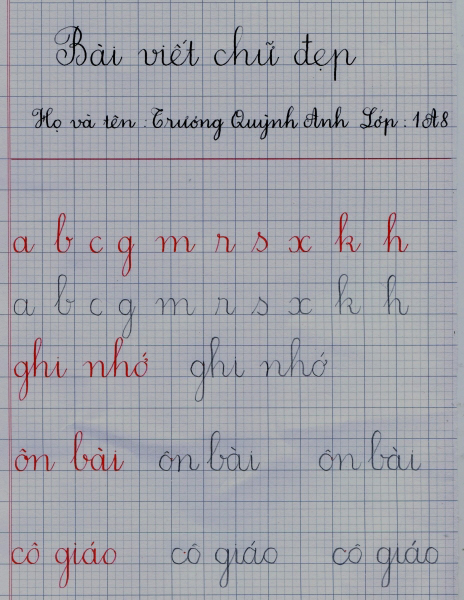 Bài viết chữ đẹp
Họ và tên : Trương Quỳnh Anh Lớp : 1A8
a b c g m r s x k h
a b c g m r s x k h
ghi nhớ ghi nhớ
ôn bài ôn bài ôn bài
cô giáo cô giáo cô giáo